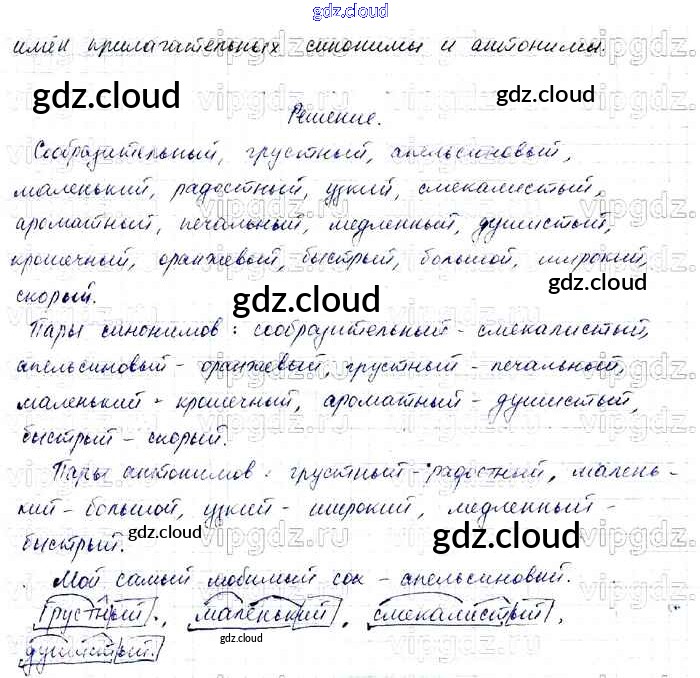 gdz.cloud
имён прилагательных синонимы и антонимы.
gdz.cloud
gdz.cloud
Решение.
Сообразительный, грустный, апельсиновый,
маленький, радостный, узкий, смекалистый,
ароматный, печальный, медленный, душистый,
крошечный, оранжевый, быстрый, большой, широкий,
скорый.
gdz.cloud
Пары синонимов: сообразительный - смекалистый,
апельсиновый - оранжевый, грустный - печальный,
маленький - крошечный, ароматный - душистый,
быстрый - скорый.
gdz.cloud
Пары антонимов: грустный - радостный, малень-
кий - большой, узкий - широкий, медленный -
быстрый.
gdz.cloud
gdz.cloud
Мой самый любимый сок - апельсиновый.
Грустный, маленький, смекалистый,
душистый.
gdz.cloud